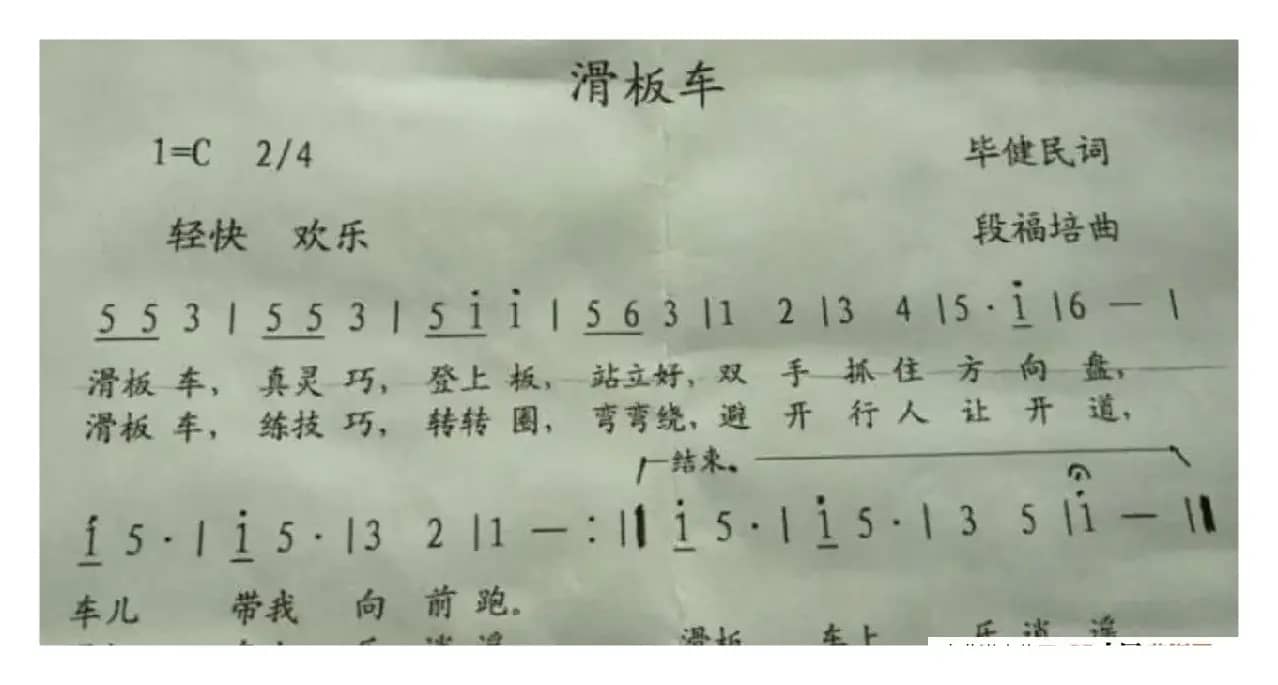 滑板车
1=C 2/4 毕健民词
轻快 欢乐 段福培曲
5 5 3 | 5 5 3 | 5 i̇ i̇ | 5 6 3 | 1 2 | 3 4 | 5 · i̇ | 6 — |
滑板 车， 真灵 巧， 登上 板， 站立好， 双 手 抓 住 方 向 盘，
滑板 车， 练技 巧， 转转 圈， 弯弯绕， 避 开 行 人 让 开 道，
结束。
i̇ 5 · | i̇ 5 · | 3 2 | 1 — :‖ i̇ 5 · | i̇ 5 · | 3 5 | i̇ — ‖
车儿 带我 向 前 跑。
滑板 车上 乐 逍 遥